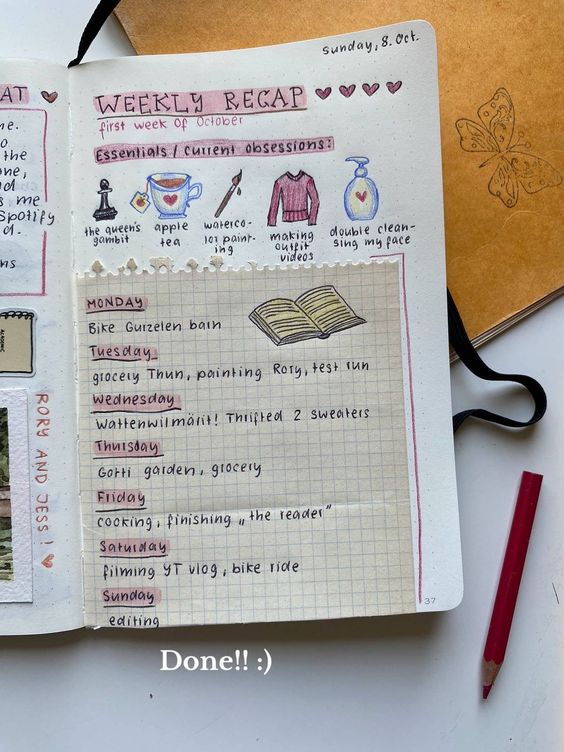 AT
ne.
the
s me
Spotify
RORY AND JESS!
sunday, 8. Oct.
WEEKLY RECAP
first week of October
Essentials / current obsessions:
the queen's
gambit
apple
tea
waterco-
lor paint-
ing
making
outfit
videos
double clean-
sing my face
MONDAY
Bike Gurzelen bain
Tuesday
grocery Thun, painting Rory, test run
Wednesday
Wattenwilmärit! Thrifted 2 sweaters
Thursday
Gotti garden, grocery
Friday
cooking, finishing „the reader"
Saturday
filming YT vlog, bike ride
Sunday
editing
37
Done!! :)